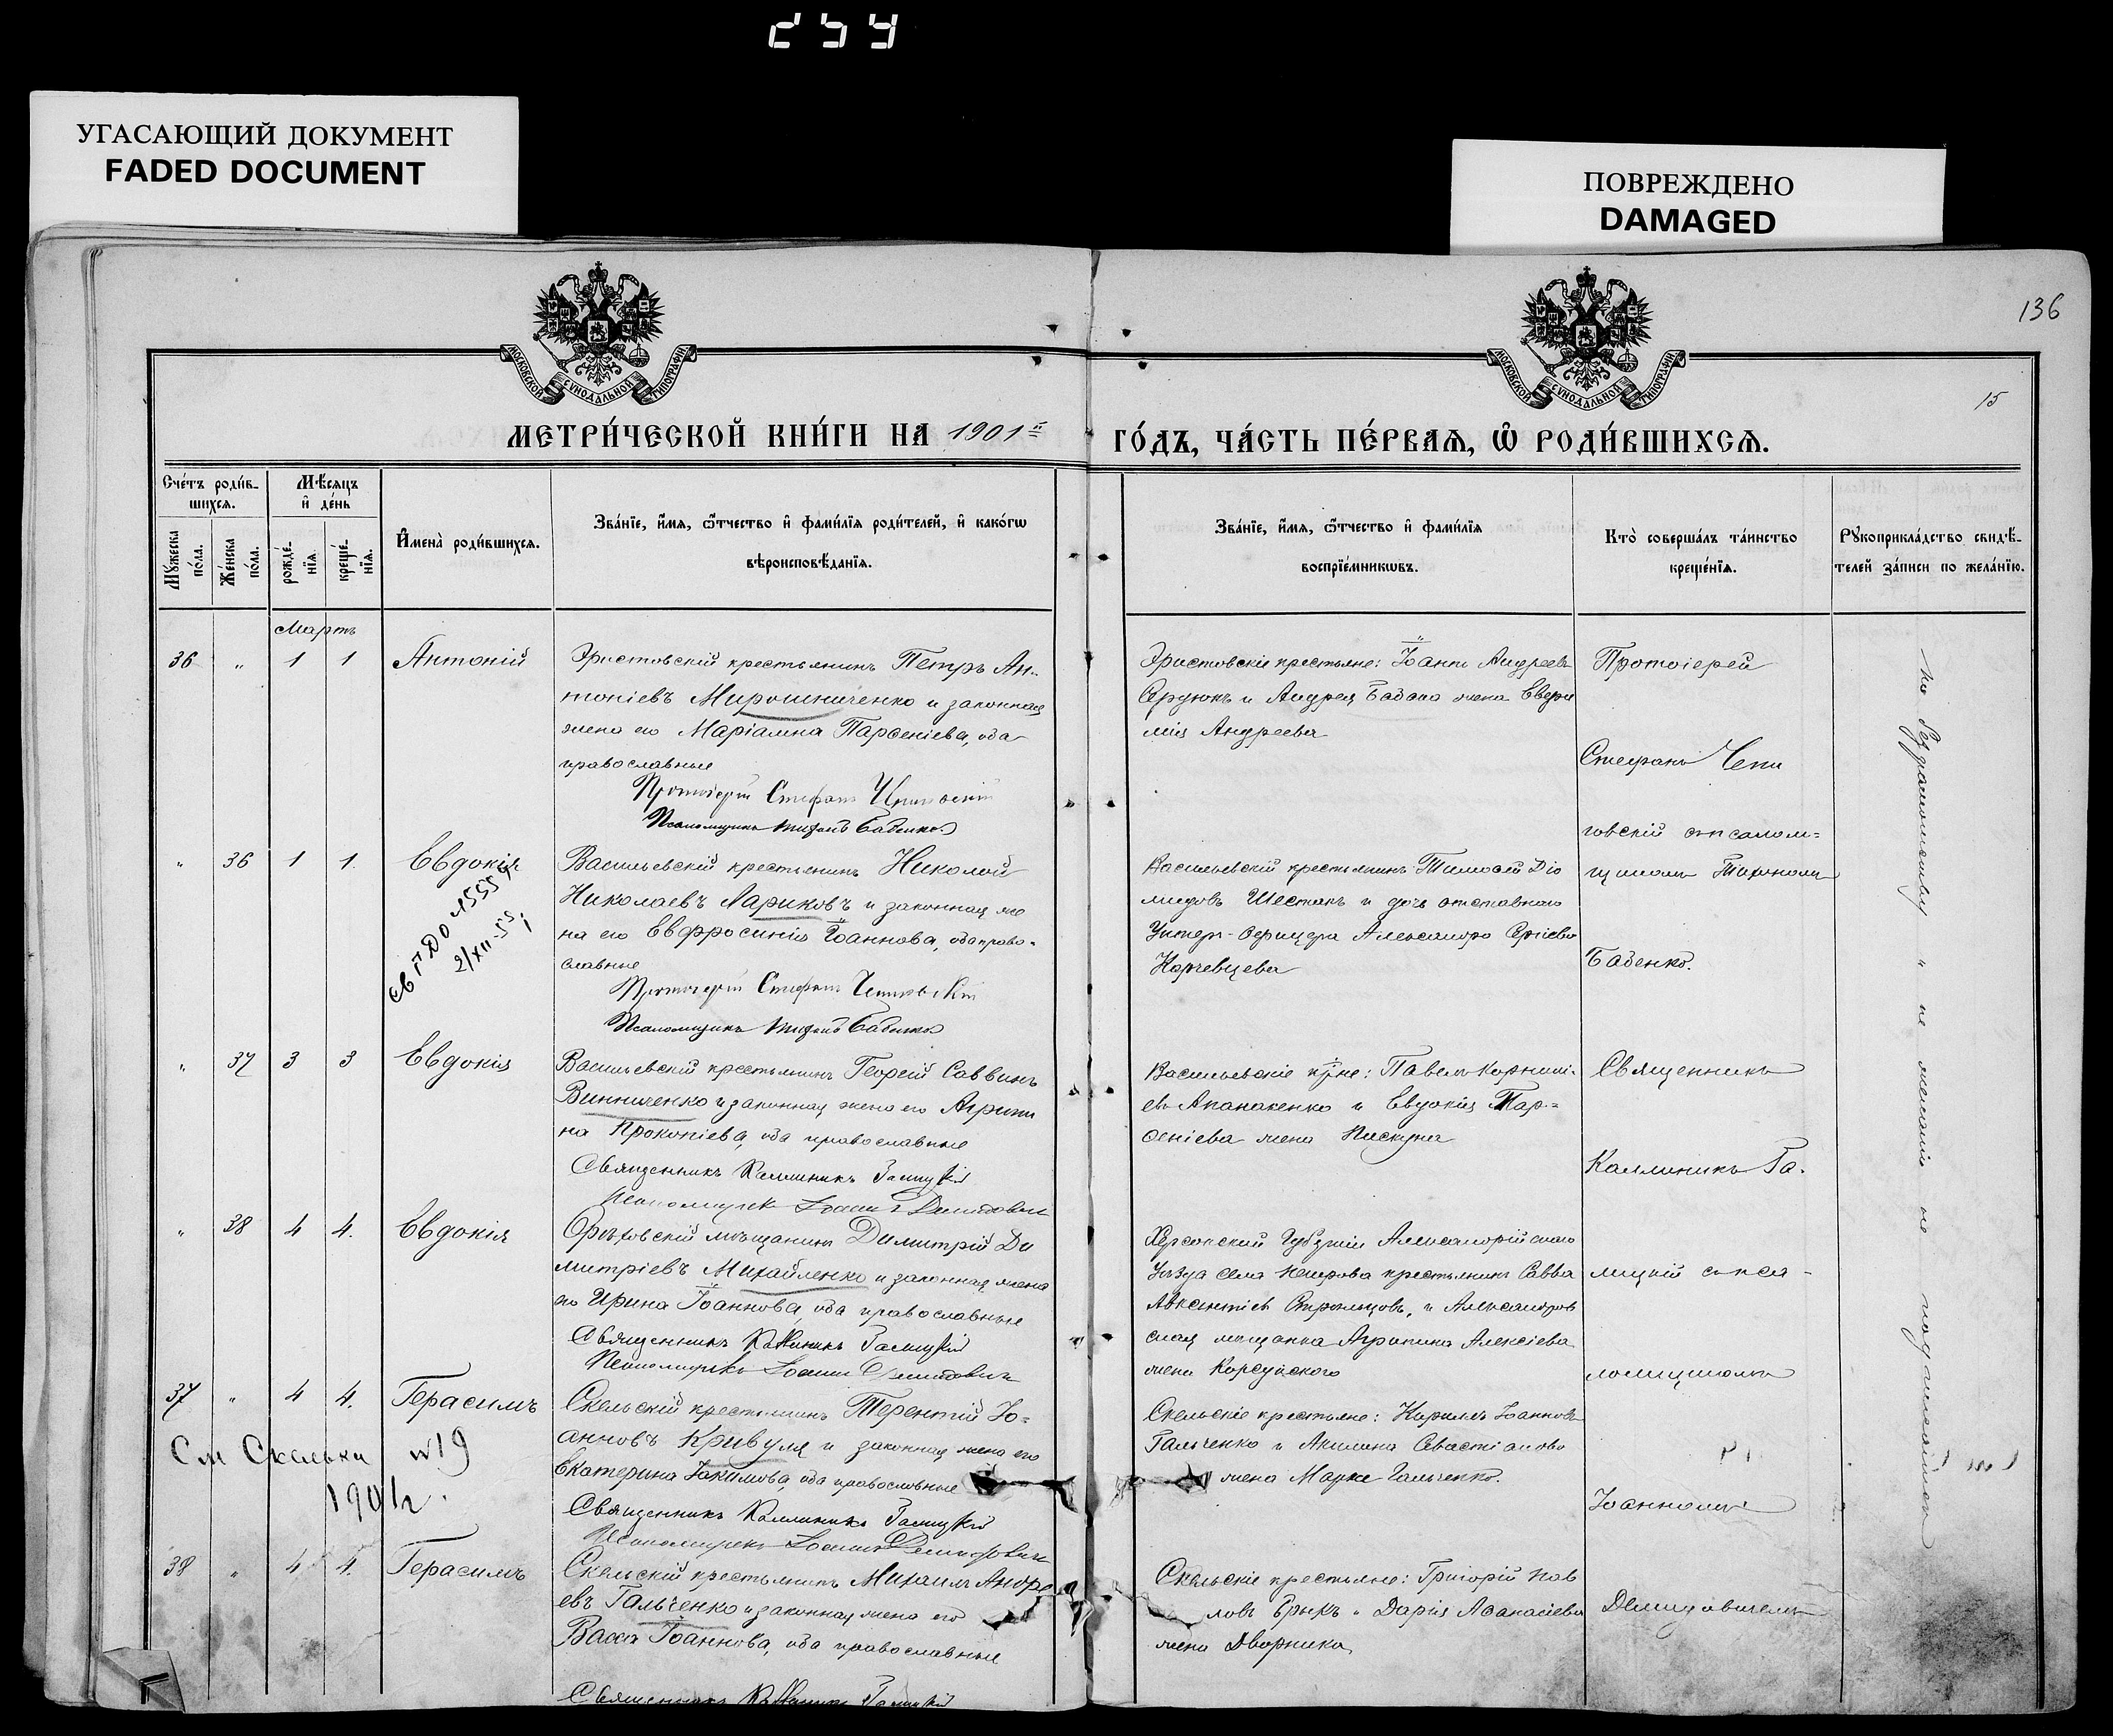 254
УГАСАЮЩИЙ ДОКУМЕНТ
FADED DOCUMENT
ПОВРЕЖДЕНО
DAMAGED
136
МОСКОВСКОЙ СУНОДАЛЬНОЙ ТИПОГРАФІИ
МОСКОВСКОЙ СУНОДАЛЬНОЙ ТИПОГРАФІИ
15
МЕТРИ́ЧЕСКОЙ КНИ́ГИ НА 1901й
ГО́ДЪ, ЧА́СТЬ ПЕ́РВАѦ, Ѡ҆ РОДИ́ВШИХСѦ.
Сче́тъ роди́в-
шихсѧ.
Мѣ́сѧцъ
и҆ де́нь
Мꙋ́жеска по́ла.
Же́нска по́ла.
рожде́-нїѧ.
креще́-нїѧ.
И҆мена̀ роди́вшихсѧ.
Зва́нїе, и҆́мѧ, ѻ҆́тчество и҆ фами́лїѧ роди́телей, и҆ како́гѡ
вѣроисповѣ́данїѧ.
Зва́нїе, и҆́мѧ, ѻ҆́тчество и҆ фами́лїѧ
воспрїе́мникѡвъ.
Кто̀ соверша́лъ та́инство
креще́нїѧ.
Рꙋкоприкла́дство свидѣ́-
телей за́писи по жела́нїю.
Мартъ
36 " 1 1 Антоній
Эристовскій крестьянинъ Петръ Ан-
тоніевъ Мирошниченко и законная
жена его Маріамна Парѳеніева, оба
православные
Протоіерей Стефанъ
Псаломщикъ Тихонъ Бабенко
Эристовскіе крестьяне: Іоаннъ Андреевъ
Сердюкъ и Андрея Бабака жена Евѳи
мія Андреева
Протоіерей
Стефанъ Чепи
говскій съ псалом=
щикомъ Тихономъ
Бабенко.
" 36 1 1. Евдокія
Васильевскій крестьянинъ Николай
Николаевъ Лариковъ и законная же
на его Евфросинія Іоаннова, оба право-
славные
Протоіерей Стефанъ
Псаломщикъ Тихонъ Бабенко
2/XII-55
Васильевскій крестьянинъ Тимоѳей Діо
мидовъ Шестакъ и дочь отставного
Унтеръ-Офицера Александра Сергіева
" 37 3 3 Евдокія
Васильевскій крестьянинъ Георгій Саввинъ
Винниченко и законная жена его Агрипи
на Прокопіева, оба православные
Священникъ Каллиникъ Галицкій
Псаломщикъ Іоаннъ Демидовичъ
Васильевскіе кр-не: Павелъ Корнилі-
евъ Апанасенко и Евдокія Пар=
ѳеніева жена Пискуна
Священникъ
Каллиникъ Га-
лицкій съ псa-
ломщикомъ
Іоанномъ
Демидовичемъ
" 38 4 4. Евдокія
Орѣховскій мѣщанинъ Димитрій Ди
митріевъ Михайленко и законная жена
его Ирина Іоаннова, оба православные
Священникъ Каллиникъ Галицкій
Псаломщикъ Іоаннъ Демидовичъ
Херсонской Губерніи Александрійскаго
Уѣзда села крестьянинъ Савва
Авксентіевъ Стрѣльцовъ, и Александров
ская мѣщанка Агрипина Алексіева
жена Корсунского
37 " 4 4. Герасимъ
Скельскій крестьянинъ Терентій Іо=
анновъ Кривуля и законная жена его
Екатерина Іакимова, оба православные
Священникъ Каллиникъ Галицкій
Псаломщикъ Іоаннъ Демидовичъ
См Скелька №19
1901г.
Скельскіе крестьяне: Кириллъ Іоанновъ
Гальченко и Акилина Севастіанова
жена Марка Гальченко.
38 " 4 4. Герасимъ
Скельскій крестьянинъ Михаилъ Андре
евъ Гальченко и законная жена его
Васса Іоаннова, оба православные
Священникъ Каллиникъ Галицкій
Скельскіе крестьяне: Григорій Пав
ловъ Брыкъ и Дарія Аѳанасіева
жена Дворника